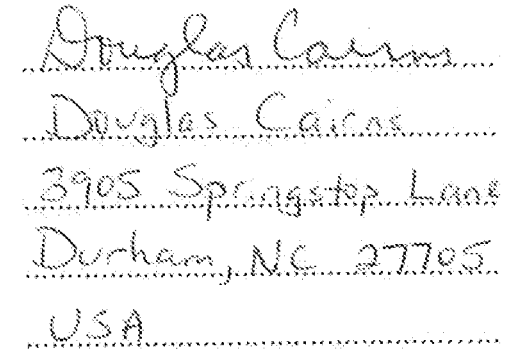 Douglas Cairns
Douglas Cairns
3905 Springstop Lane
Durham, NC 27705
USA